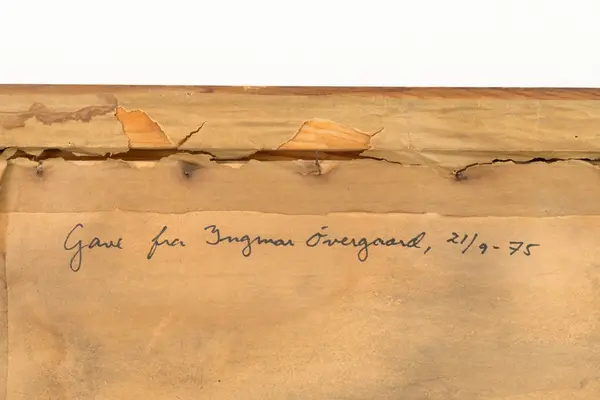 Gave fra Ingmar Övergaard, 21/9-75